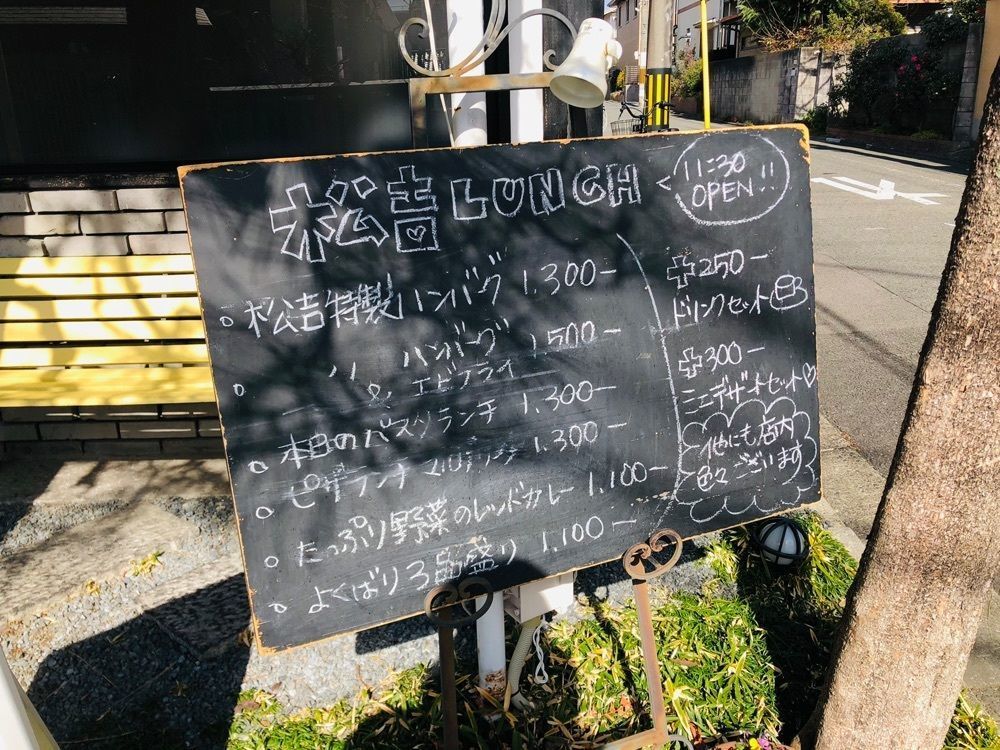 松吉 LUNCH
11:30
OPEN!!
○ 松吉特製ハンバグ 1,300-
○ 〃 ハンバーグ 1,500-
& エビフライ
○ 本日のパスタランチ 1,300-
○ ピザランチ マルゲリータ 1,300-
○ たっぷり野菜のレッドカレー 1,100-
○ よくばり3品盛り 1,100-
+250-
ドリンクセット
+300-
ミニデザートセット♡
他にも店内
色々ございます